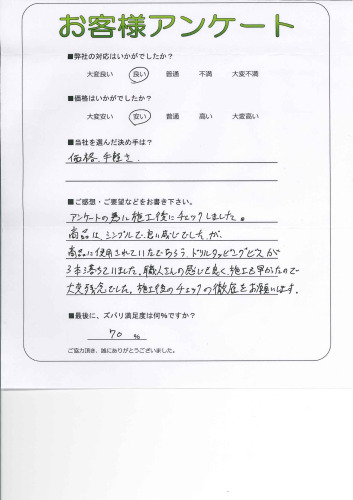 お客様アンケート
■弊社の対応はいかがでしたか?
大変良い 良い 普通 不満 大変不満
■価格はいかがでしたか?
大変安い 安い 普通 高い 大変高い
■当社を選んだ決め手は?
価格、手軽さ、
■ご感想・ご要望などをお書き下さい。
アンケートの為に施工後にチェックしました。
商品は、シンプルで良い感じでしたが、
商品に使用されていたであろう、ドリルタッピングビスが
3本落ちていました。職人さんの感じも良く、施工も早かったので
大変残念でした。施工後のチェックの徹底をお願いします。
■最後に、ズバリ満足度は何%ですか?
70 %
ご協力頂き、誠にありがとうございました。